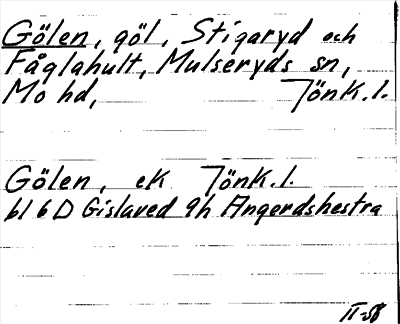 Gölen, göl, Stigaryd och
Fåglahult, Mulseryds sn,
Mo hd, Jönk.l.
Gölen, ek Jönk.l.
bl 6D Gislaved 9h Angerdshestra
II-58